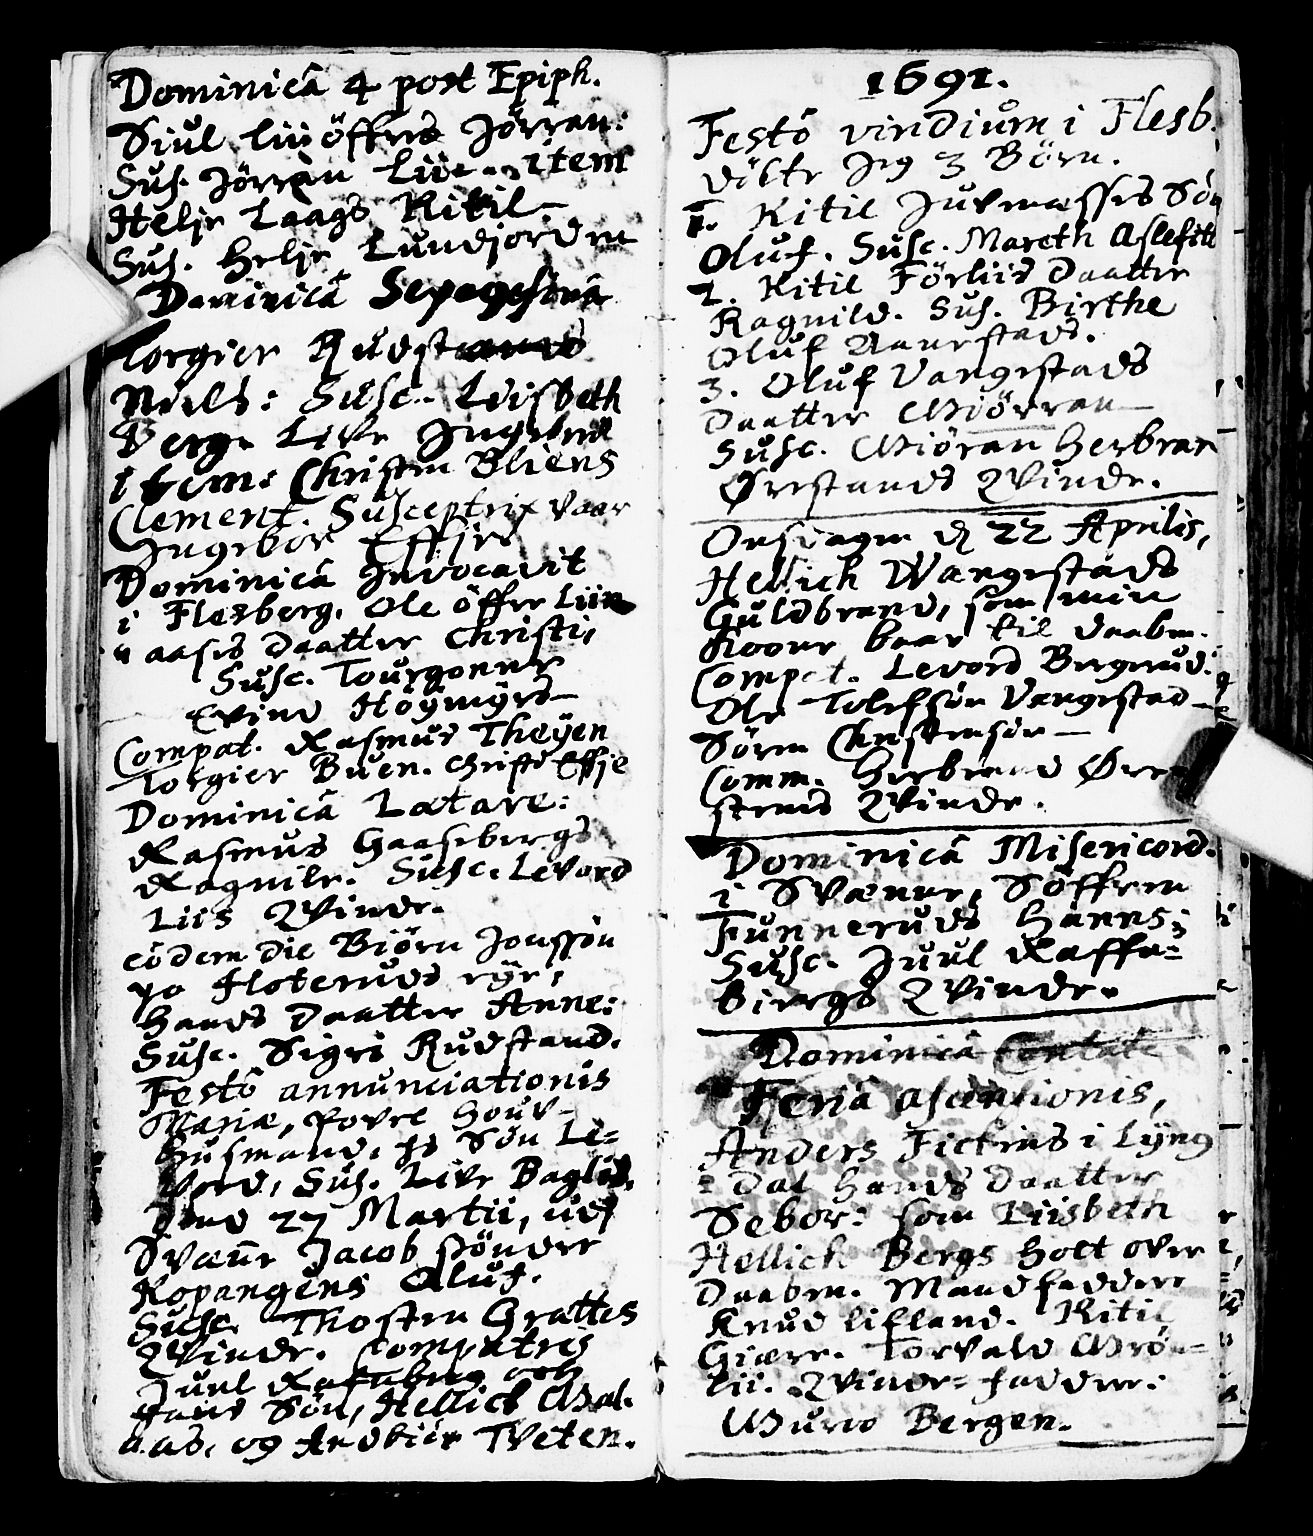 Dominicâ 4 post Epiph.
Siul Lii öffres Jörran:
Sus. Jörran Lii. item
Helje Laags Kitil
Sus. Helje Lundjorden
Dominicâ
Torgier
Niels: Susc. Lvisbeth
Berge Live
item: Christen Bliens
Clement. Susceptrix vaar
Ingebor Effje
Dominicâ Invocavit
i Flesberg. Ole öffre Lii
aases Daatter Christi,
Susc. Tourgonner
Evind Höymyrd
Compat. Rasmus Theÿen
Torgier Buen. Christi Effje
Dominicâ Lætare:
Rasmus Haasebergs
Ragnile. Susc. Levord
Liis Qvinde.
eödem die Biörn Jonssön
pa Floteruds eÿe,
Hands Daatter Anne:
Susc. Sigri Rudstand.
Festô annunciationis
Mariæ, Povel Houv-
husmand, Sön Le=
vord, Sus. Live Baglid.
Dend 27 Martii, udj
Svæne Jacob sönder
Kopangens Oluf.
Susc. Thosten Grattes
Qvinde. Compatres
Juul
Sön, Hellick
aas, og Tveten.
1691.
Festô viridium i Flesb.
Döbte Jeg 3 Börn.
1. Kitil Juvenæsses Sön
Oluf. Susc. Mareth Aslefet
2. Kitil Förliis Daatter
Ragnild. Sus. Birthe
Oluf
3. Oluf Vangestads
Daatter Giörran
Susc. Giöran Herbran
Ørestands Qvinde.
Onsdagen d 22 Aprilis,
Hellich Wangestads
Guldbrand, som min
Koone baar til daaben.
Compat. Levord Bergerud.
Ole Tolefsön Vangestad
Sören Christensön
Comm. Herbrand Ørre
stands Qvinde.
Dominicâ Misericord.
i Svænne, Söffren
Funneruds Hanns;
Susc. Juul Raffa=
biergs Qvinde.
Dominicâ Cantate
Feria ascentionis,
Anders Fickens i Lÿng
dal Hands Daatter
Sebor: som Liisbeth
Hellick Bergs holt over
Daaben. Mandfaddere
Knud lifland. Kitil
Giære. Torvald Grön=
lii. Qvinde=faddere:
Guro Bergen.